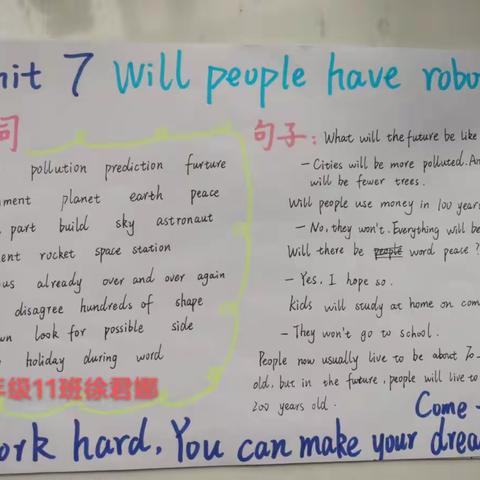 nit 7 Will peuple have robo
词
pollution prediction furture
nment planet earth peace
part build sky astronaut
ent rocket space station
us already over and over again
disagree hundreds of shape
wn look for possible side
holiday during word
年级11班徐君娜
句子: What will the future be like
— Cities will be more polluted. An
will be fewer trees.
Will people use money in 100 years
— No, they won't. Everything will be
Will there be people word peace?
— Yes, I hope so.
Kids will study at home on com
— They won't go to school.
People now usually live to be about 70-
old, but in the future, people will live to
200 years old.
Come -
ork hard, You can make your drea